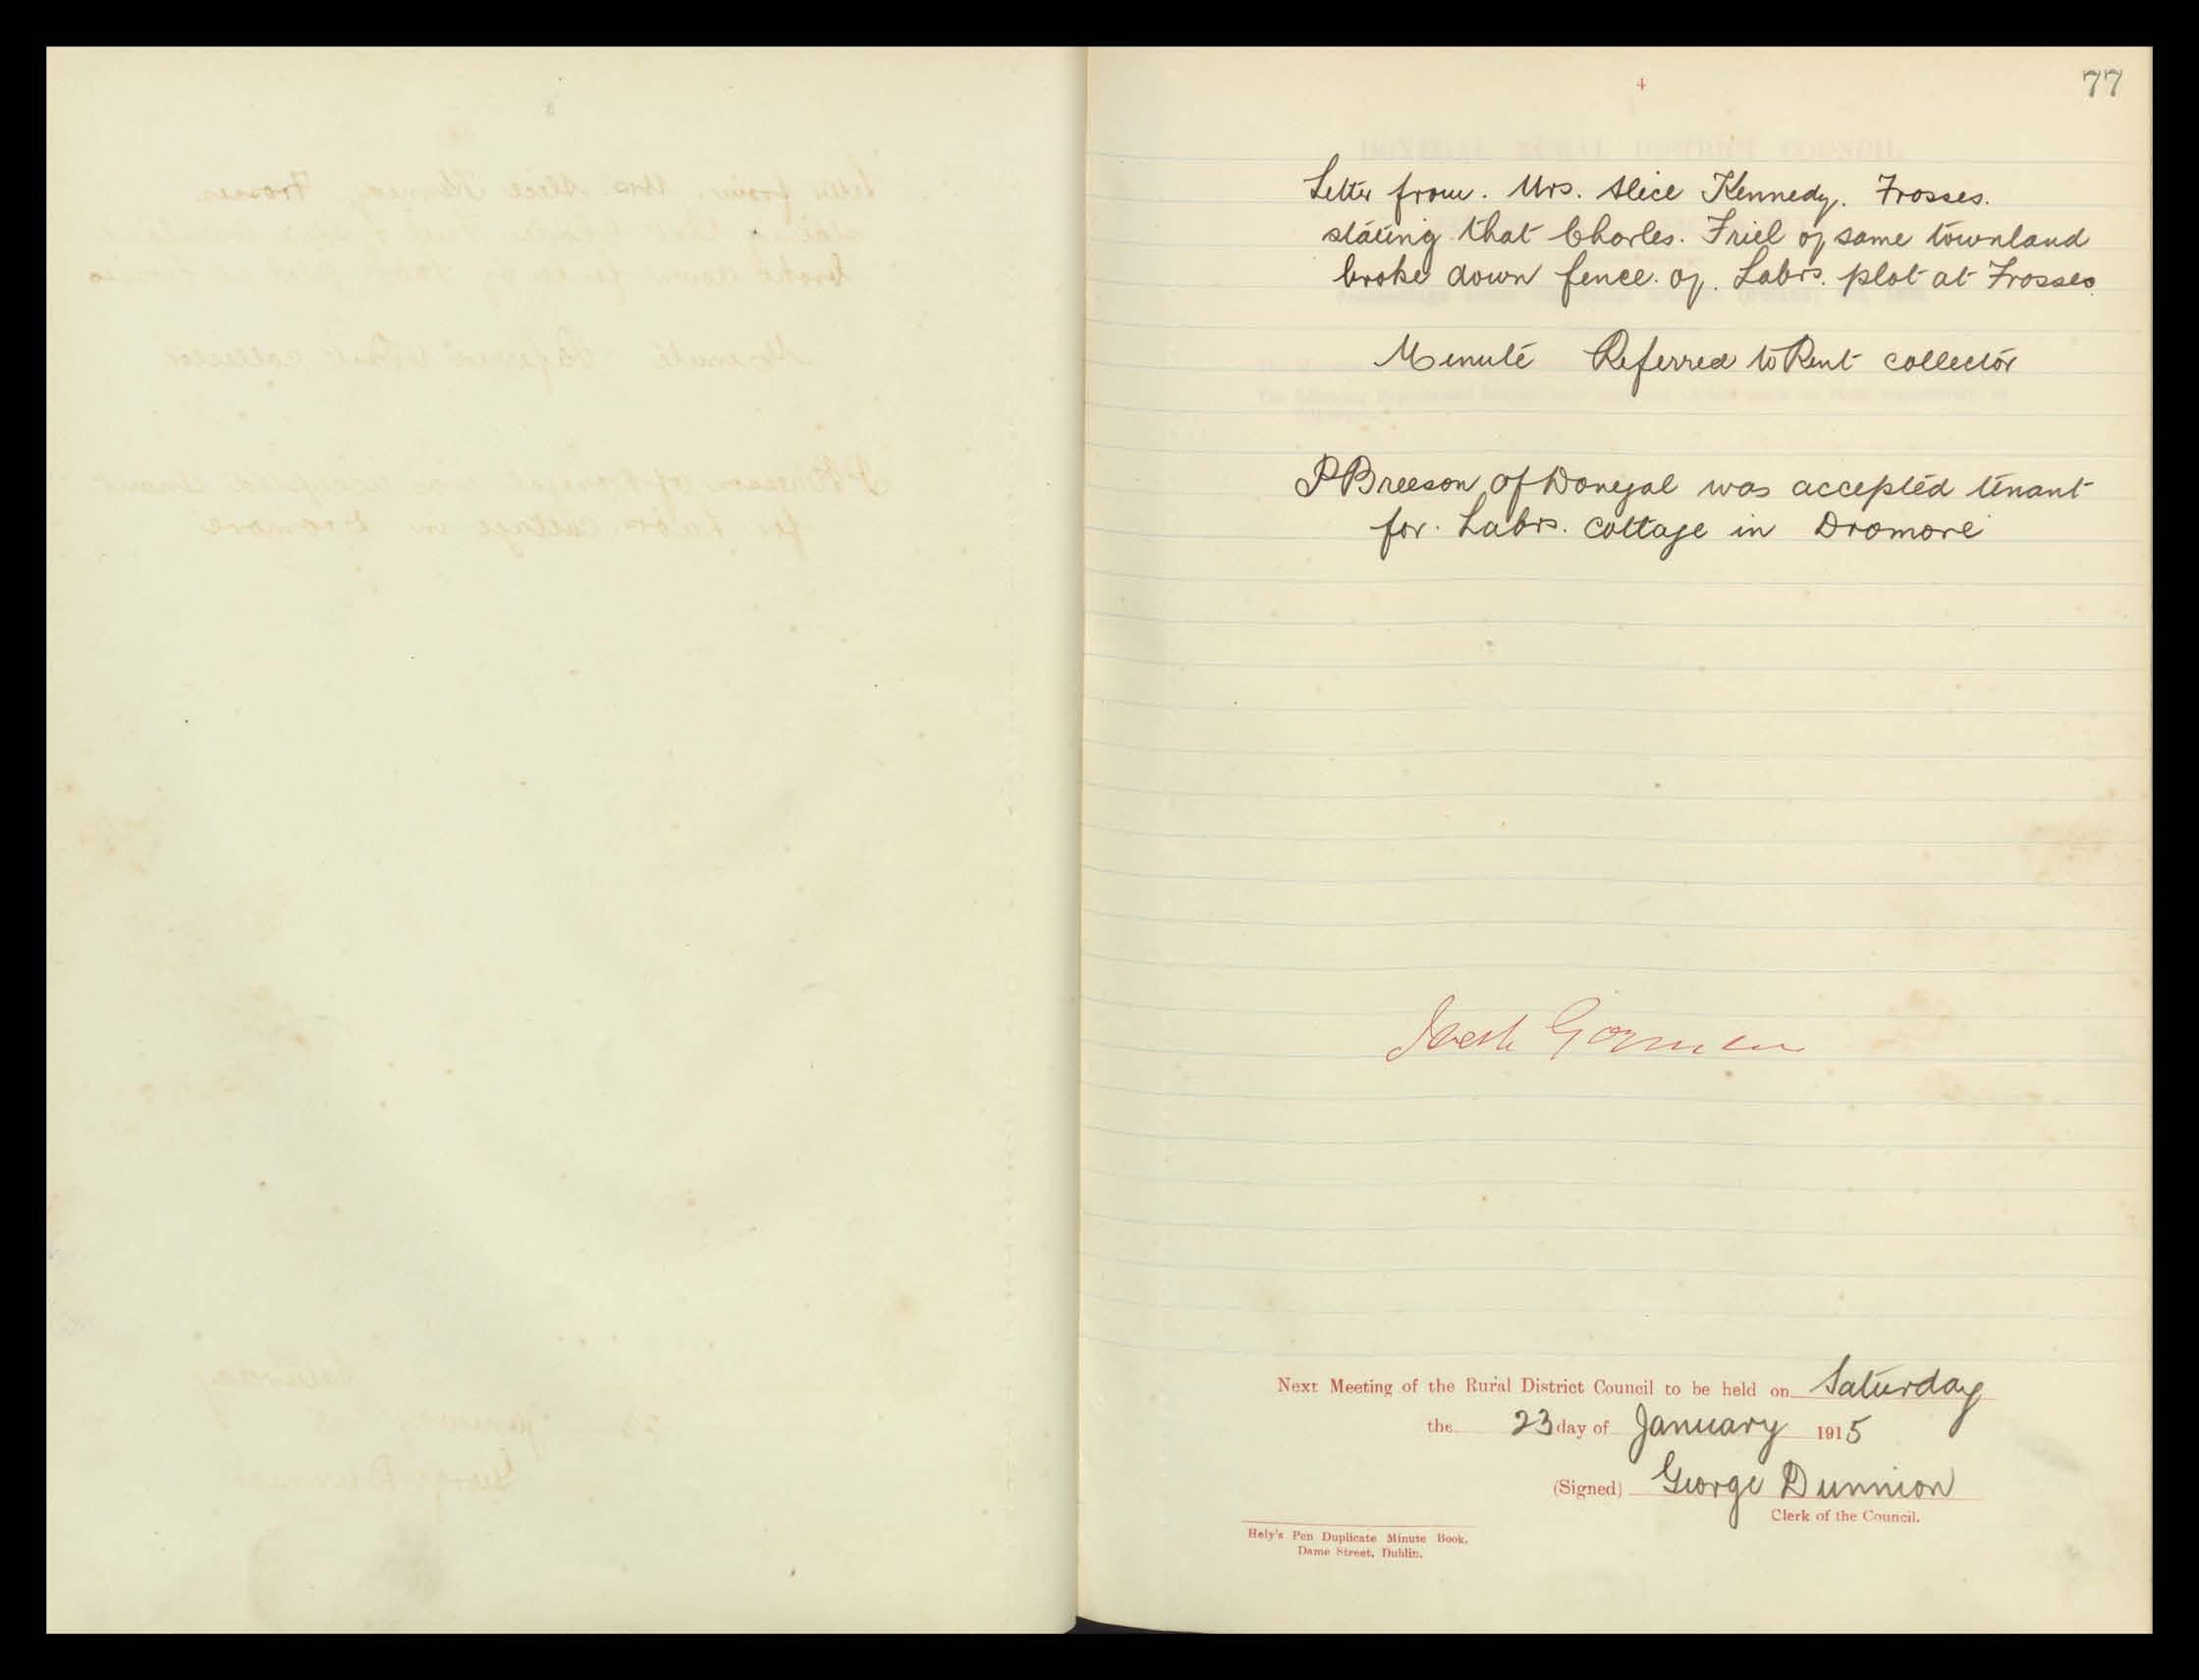 4
77
Letter from. Mrs. Alice Kennedy. Frosses.
stating that Charles. Friel of same townland
broke down fence. of. Labrs. plot at Frosses.
Minute Referred to Rent collector
P Breeson of Donegal was accepted tenant
for. Labrs. cottage in Dromore
Gorman
Next Meeting of the Rural District Council to be held on Saturday
the 23 day of January 1915
(Signed) George Dunnion
Clerk of the Council.
Hely's Pen Duplicate Minute Book,
Dame Street, Dublin.